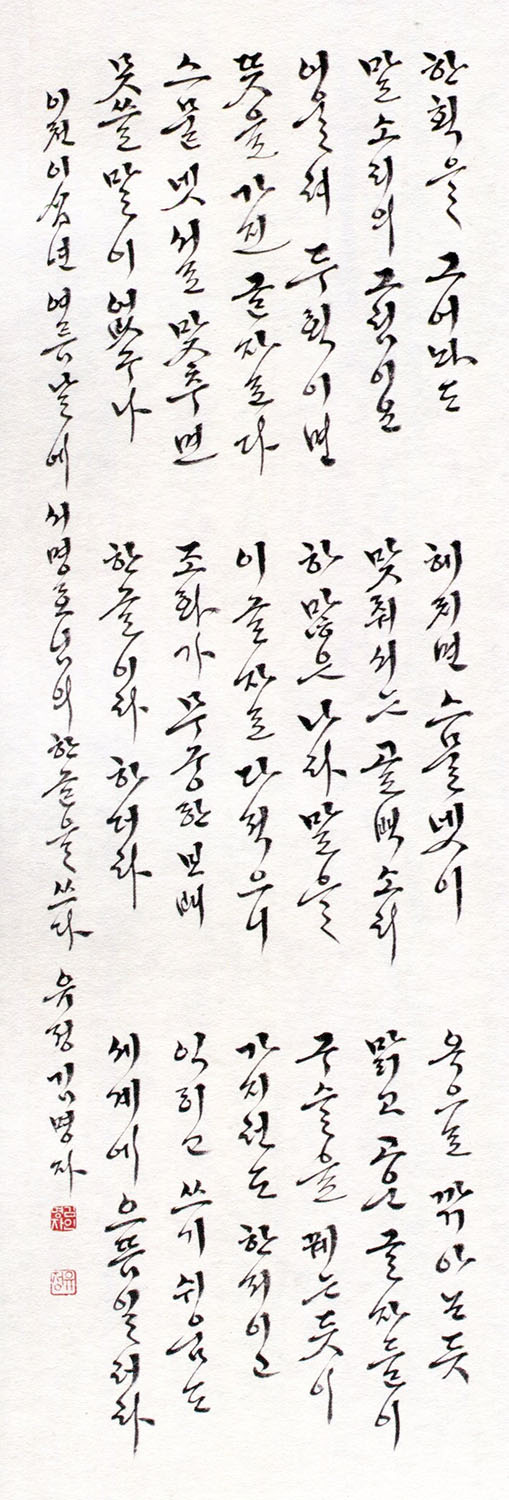 한획을 그어라도
말소리의 그림이요
어울려 두획이면
뜻을 가진 글자로다
스물넷 서로 맞추면
못쓸 말이 없구나
헤치면 스믈넷이
맞춰서는 골백소리
하많은 나라말을
이글자로 다적으니
조화가 무궁한 보배
한글이라 하더라
옥으로 깎아논듯
맑고 고운 글자들이
구슬을 꿰는듯이
가지런도 한지이고
익히고 쓰기 쉬움도
세계에 으뜸일러라
이천이십년 여름날에 서명호님의 한글을 쓰다 유정 김명자